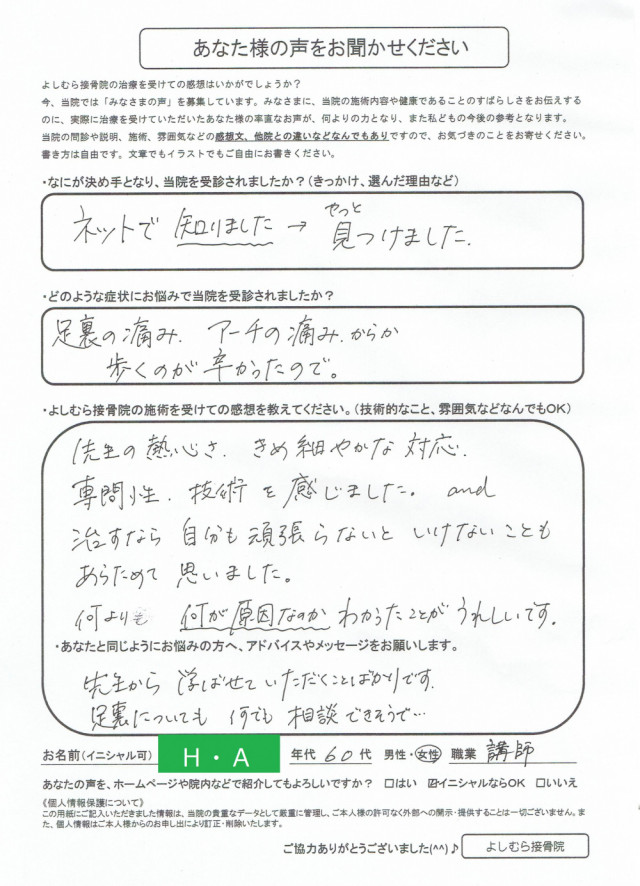 あなた様の声をお聞かせください
よしむら接骨院の治療を受けての感想はいかがでしょうか?
今、当院では「みなさまの声」を募集しています。みなさまに、当院の施術内容や健康であることのすばらしさをお伝えする
のに、実際に治療を受けていただいたあなた様の率直なお声が、何よりの力となり、また私どもの今後の参考となります。
当院の問診や説明、施術、雰囲気などの感想文、他院との違いなどなんでもありですので、お気づきのことをお寄せください。
書き方は自由です。文章でもイラストでもご自由にお書きください。
・なにが決め手となり、当院を受診されましたか?(きっかけ、選んだ理由など)
ネットで 知りました → やっと
見つけました.
・どのような症状にお悩みで当院を受診されましたか?
足裏の痛み. アーチの痛み.からか
歩くのが 辛かったので。
・よしむら接骨院の施術を受けての感想を教えてください。(技術的なこと、雰囲気などなんでもOK)
先生の熱心さ. きめ細やかな対応.
専門性. 技術を感じました。 and
治すなら 自分も頑張らないと いけないことも
あらためて 思いました。
何よりも 何が原因なのか わかったことが うれしいです.
・あなたと同じようにお悩みの方へ、アドバイスやメッセージをお願いします。
先生から 学ばせていただくことばかりです.
足裏についても 何でも 相談できそうで…
お名前(イニシャル可) H・A 年代 60代 男性・女性 職業 講師
あなたの声を、ホームページや院内などで紹介してもよろしいですか? □はい ☑イニシャルならOK □いいえ
《個人情報保護について》
この用紙にご記入いただきました情報は、当院の貴重なデータとして厳重に管理し、ご本人様の許可なく外部への開示・提供することは一切ございません。ま
た、個人情報はご本人様からのお申し出により訂正・削除いたします。
ご協力ありがとうございました(^^)♪ よしむら接骨院